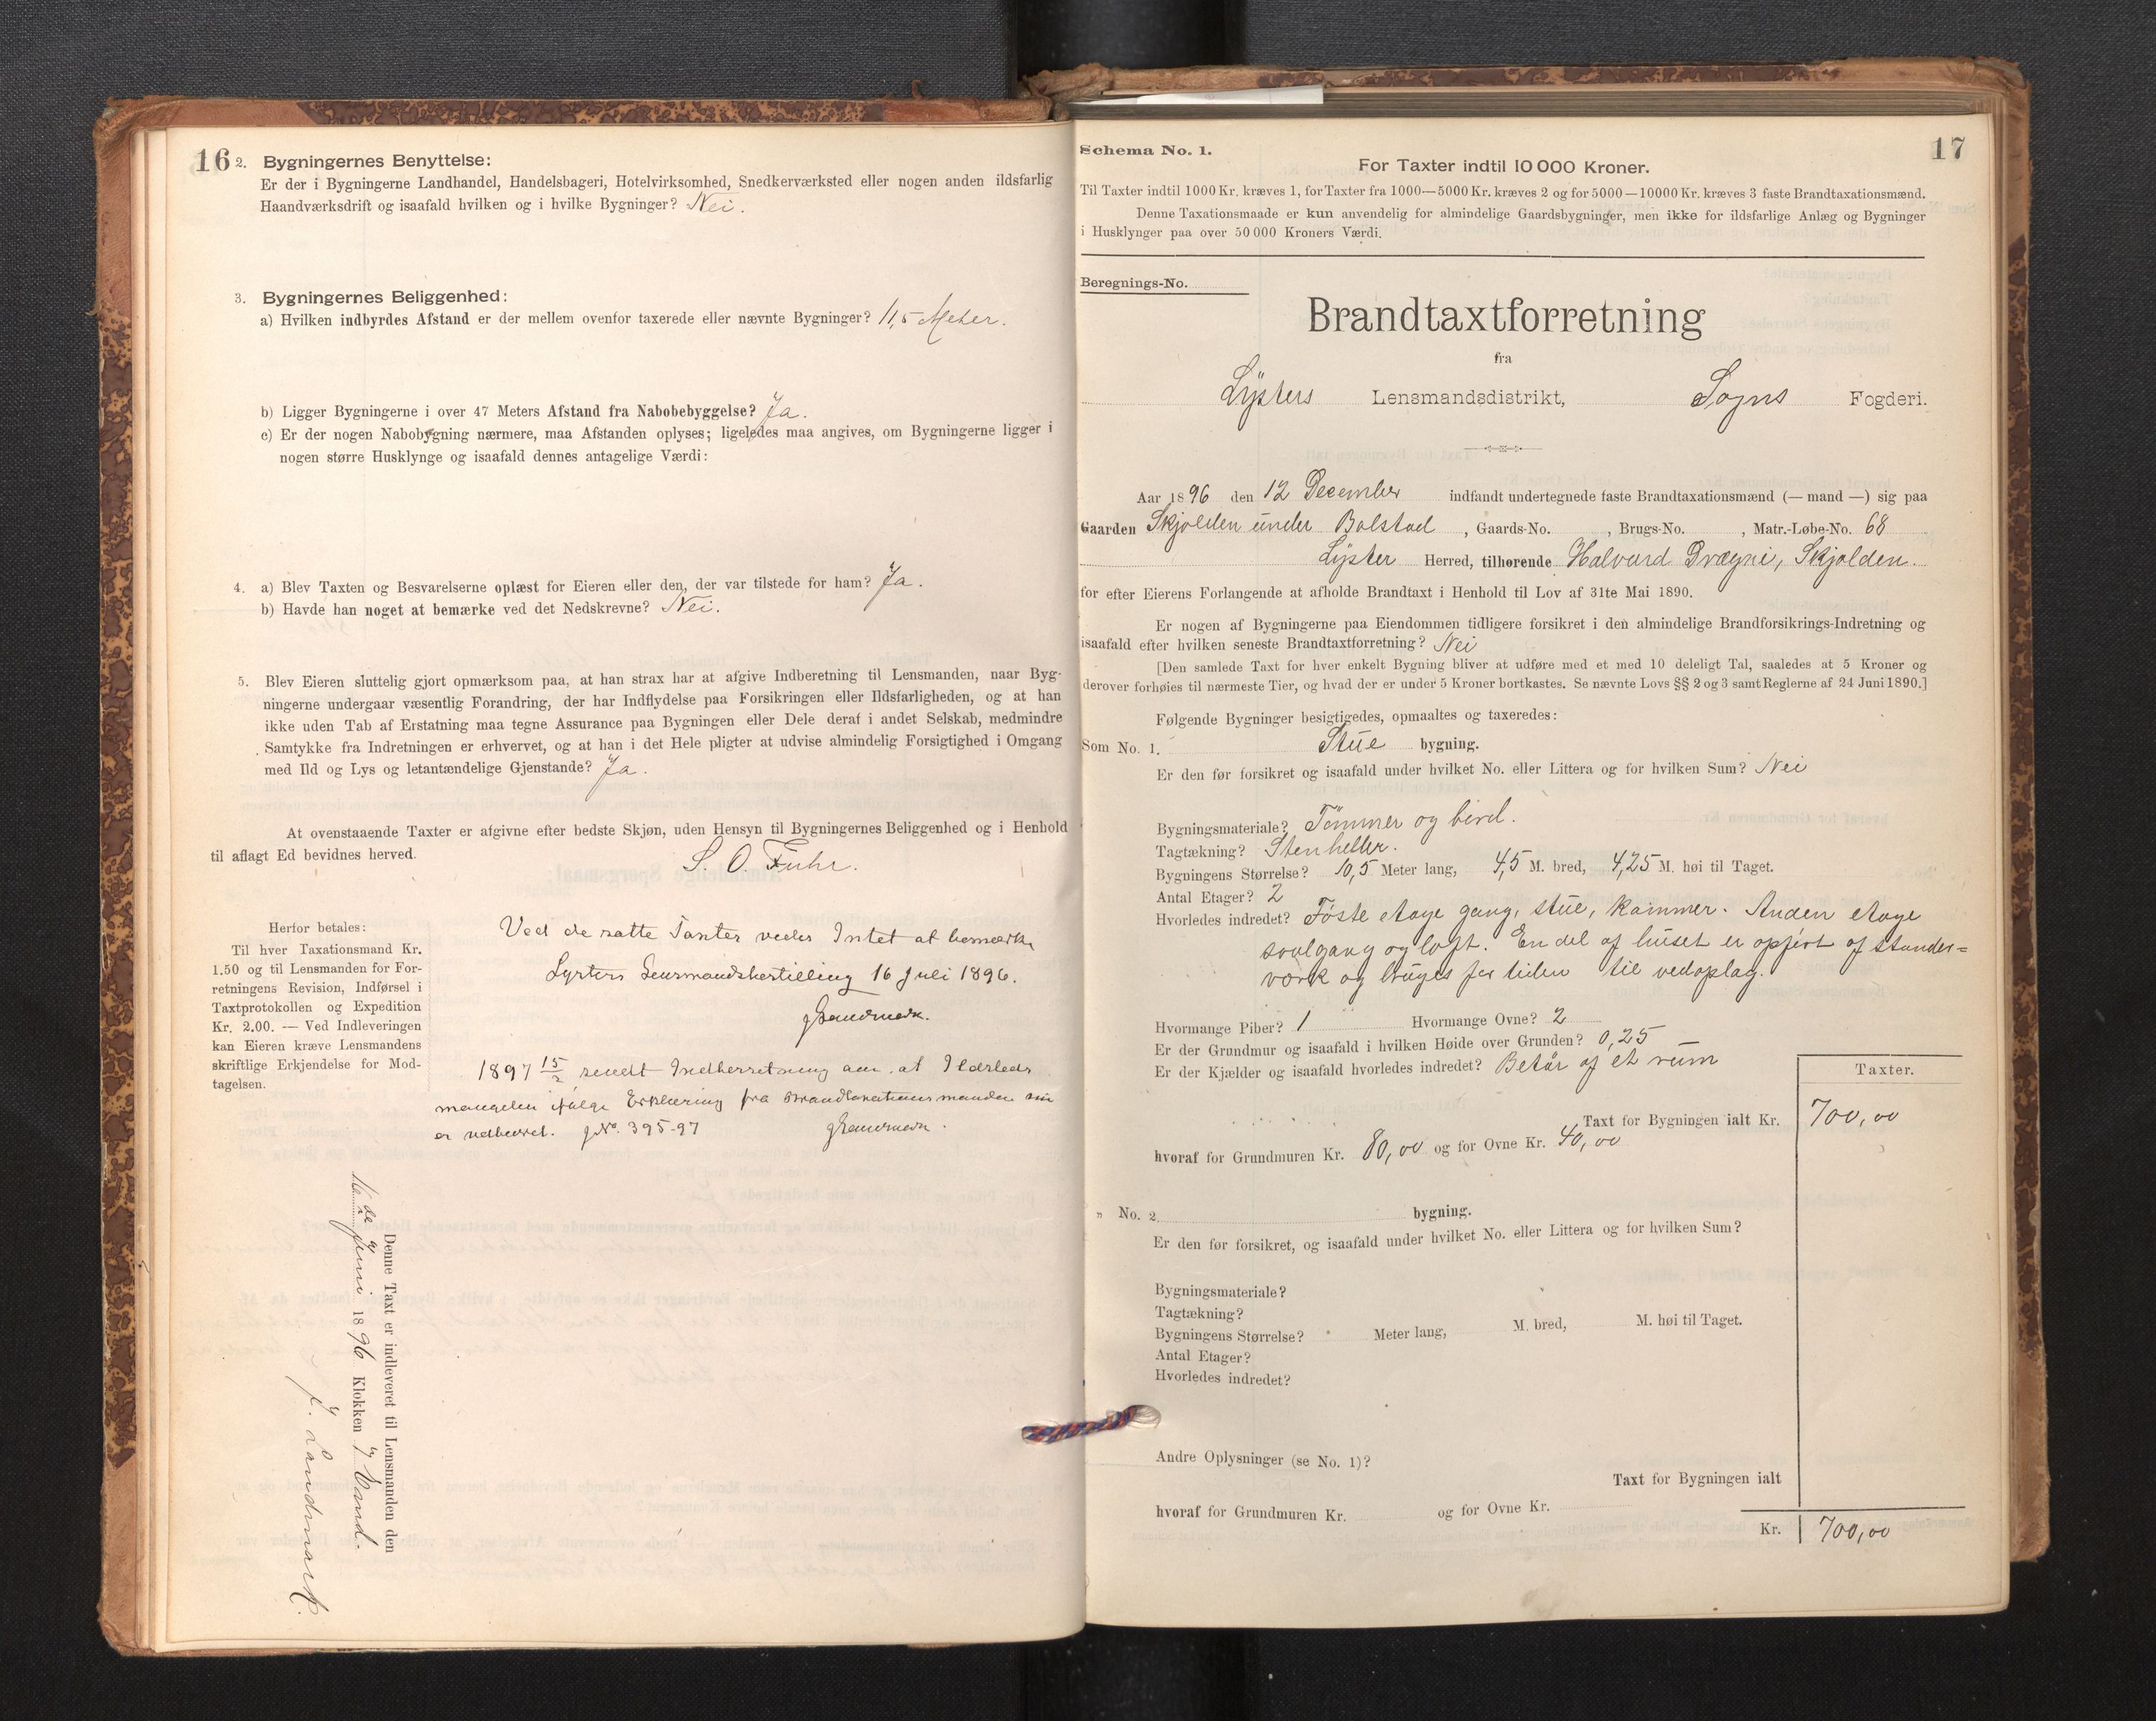 16
2. Bygningernes Benyttelse:
Er der i Bygningerne Landhandel, Handelsbageri, Hotelvirksomhed, Snedkerværksted eller nogen anden ildsfarlig
Haandværksdrift og isaafald hvilken og i hvilke Bygninger? Nei.
3. Bygningernes Beliggenhed:
a) Hvilken indbyrdes Afstand er der mellem ovenfor taxerede eller nævnte Bygninger? 11,5 Meter.
b) Ligger Bygningerne i over 47 Meters Afstand fra Nabobebyggelse? Ja.
c) Er der nogen Nabobygning nærmere, maa Afstanden oplyses; ligeledes maa angives, om Bygningerne ligger i
nogen større Husklynge og isaafald dennes antagelige Værdi:
4. a) Blev Taxten og Besvarelserne oplæst for Eieren eller den, der var tilstede for ham? Ja.
b) Havde han noget at bemærke ved det Nedskrevne? Nei.
5. Blev Eieren sluttelig gjort opmærksom paa, at han strax har at afgive Indberetning til Lensmanden, naar Byg-
ningerne undergaar væsentlig Forandring, der har Indflydelse paa Forsikringen eller Ildsfarligheden, og at han
ikke uden Tab af Erstatning maa tegne Assurance paa Bygningen eller Dele deraf i andet Selskab, medmindre
Samtykke fra Indretningen er erhvervet, og at han i det Hele pligter at udvise almindelig Forsigtighed i Omgang
med Ild og Lys og letantændelige Gjenstande? Ja.
At ovenstaaende Taxter er afgivne efter bedste Skjøn, uden Hensyn til Bygningernes Beliggenhed og i Henhold
til aflagt Ed bevidnes herved.
S. O. Fuhr.
Herfor betales:
Til hver Taxationsmand Kr.
1.50 og til Lensmanden for For-
retningens Revision, Indførsel i
Taxtprotokollen og Expedition
Kr. 2.00. — Ved Indleveringen
kan Eieren kræve Lensmandens
skriftlige Erkjendelse for Mod-
tagelsen.
Ved de satte Taxter vides Intet at bemærke
Lysters Lensmandsbestilling 16 Juli 1896.
JLandmark.
1897 15/2 sendt Indberretning om, at Ildsteds
mangelen ifølge Erklæring fra Brandtaxationsmanden nu
er udbedret. JNo. 395-97 JLandmark.
Denne Taxt er indleveret til Lensmanden den
16de Juni 1896 Klokken 7 Eftmd.
J. Landmark.
17
Schema No. 1.
For Taxter indtil 10 000 Kroner.
Til Taxter indtil 1000 Kr. kræves 1, for Taxter fra 1000—5000 Kr. kræves 2 og for 5000—10000 Kr. kræves 3 faste Brandtaxationsmænd.
Denne Taxationsmaade er kun anvendelig for almindelige Gaardsbygninger, men ikke for ildsfarlige Anlæg og Bygninger
i Husklynger paa over 50 000 Kroners Værdi.
Beregnings-No.
Brandtaxtforretning
fra
Lysters Lensmandsdistrikt, Sogns Fogderi.
Aar 1896 den 12 December indfandt undertegnede faste Brandtaxationsmænd (— mand —) sig paa
Gaarden Skjolden under Bolstad, Gaards-No. , Brugs-No. , Matr.-Løbe-No. 68
Lyster Herred, tilhørende Halvard Drægni, Skjolden.
for efter Eierens Forlangende at afholde Brandtaxt i Henhold til Lov af 31te Mai 1890.
Er nogen af Bygningerne paa Eiendommen tidligere forsikret i den almindelige Brandforsikrings-Indretning og
isaafald efter hvilken seneste Brandtaxtforretning? Nei
[Den samlede Taxt for hver enkelt Bygning bliver at udføre med et med 10 deleligt Tal, saaledes at 5 Kroner og
derover forhøies til nærmeste Tier, og hvad der er under 5 Kroner bortkastes. Se nævnte Lovs §§ 2 og 3 samt Reglerne af 24 Juni 1890.]
Følgende Bygninger besigtigedes, opmaaltes og taxeredes:
Som No. 1. Stue bygning.
Er den før forsikret og isaafald under hvilket No. eller Littera og for hvilken Sum? Nei
Bygningsmateriale? Tømmer og bord.
Tagtækning? Stenheller.
Bygningens Størrelse? 10,5 Meter lang, 4,5 M. bred, 4,25 M. høi til Taget.
Antal Etager? 2
Hvorledes indredet? Føste etage gang, stue, kammer. Anden etage
svalgang og loft. En del af huset er opført af stander=
værk og bruges for tiden til vedoplag.
Hvormange Piber? 1 Hvormange Ovne? 2
Er der Grundmur og isaafald i hvilken Høide over Grunden? 0,25
Er der Kjælder og isaafald hvorledes indredet? Betår af et rum
Taxter.
Taxt for Bygningen ialt Kr. 700,00
hvoraf for Grundmuren Kr. 80,00 og for Ovne Kr. 40,00
" No. 2. bygning.
Er den før forsikret, og isaafald under hvilket No. eller Littera og for hvilken Sum?
Bygningsmateriale?
Tagtækning?
Bygningens Størrelse? Meter lang, M. bred, M. høi til Taget.
Antal Etager?
Hvorledes indredet?
Andre Oplysninger (se No. 1)?
Taxt for Bygningen ialt
hvoraf for Grundmuren Kr. og for Ovne Kr.
Kr. 700,00